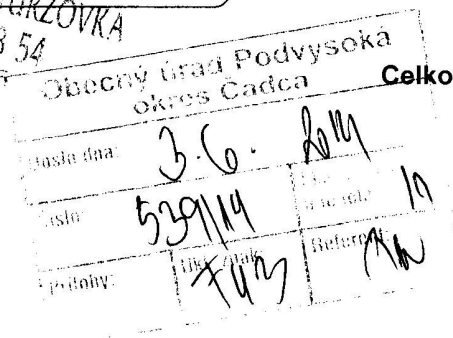 TURZOVKA
Obecný úrad Podvysoká
okres Čadca
Celko
Došlo dňa: 3.6. 2014
Číslo: 539/14
Prílohy:
Ukl. znak: FU3
Referent: